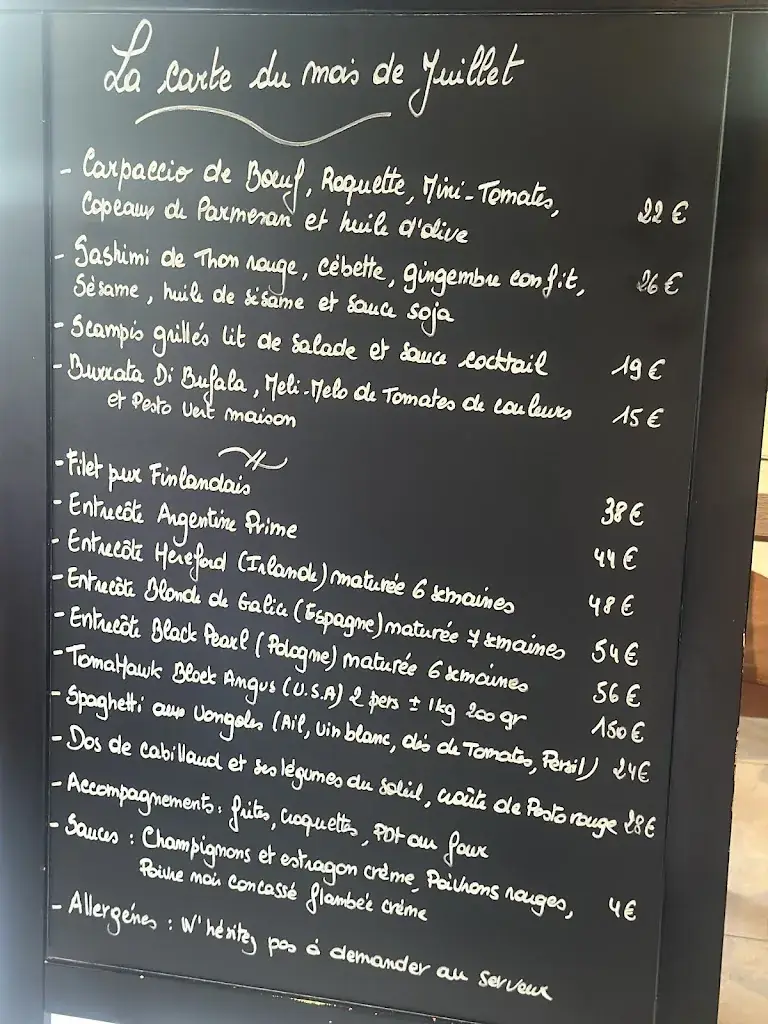 La carte du mois de Juillet
- Carpaccio de Bœuf, Roquette, Mini-Tomates,
Copeaux de Parmesan et huile d'olive 22 €
- Sashimi de Thon rouge, cébette, gingembre confit, 26 €
Sésame, huile de sésame et sauce soja
- Scampis grillés lit de salade et sauce cocktail 19 €
- Burrata Di Bufala, Meli-Melo de Tomates de couleurs 15 €
et Pesto Vert maison
- Filet pur Finlandais 38 €
- Entrecôte Argentine Prime 44 €
- Entrecôte Hereford (Irlande) maturée 6 semaines 48 €
- Entrecôte Blonde de Galice (Espagne) maturée 7 semaines 54 €
- Entrecôte Black Pearl (Pologne) maturée 6 semaines 56 €
- TomaHawk Black Angus (U.S.A) 2 pers ± 1kg 200 gr 150 €
- Spaghetti aux Vongoles (Ail, Vin blanc, dés de Tomates, Persil) 24€
- Dos de cabillaud et ses légumes du soleil, croûte de Pesto rouge 28€
- Accompagnements : frites, croquettes, PDT au four
- Sauces : Champignons et estragon crème, Poivrons rouges, 4€
Poivre noir concassé flambée crème
- Allergénes : N'hésitez pas à demander au serveur